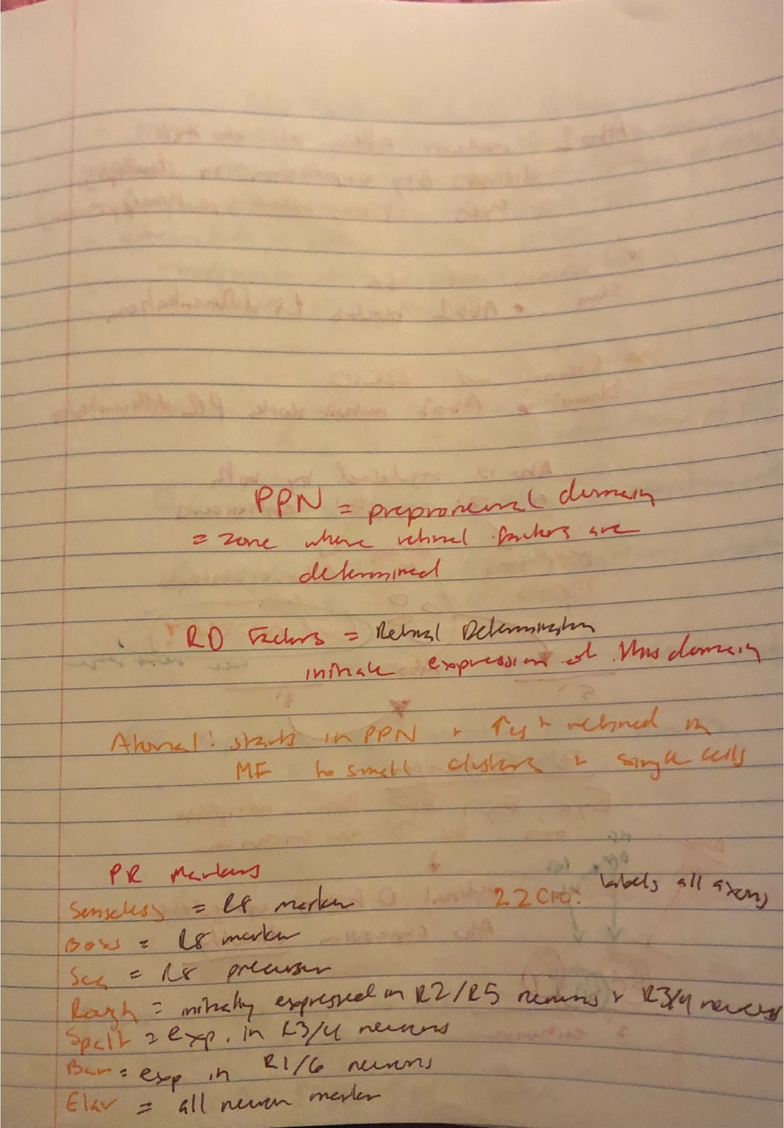 PPN = preproneural domain
= zone where retinal factors are
determined
RD Factors = Retinal Determination
initiate expression of this domain
Atonal: starts in PPN + is refined in
MF to small clusters + single cells
PR Markers
Senseless = R8 marker
22C10: labels all axons
Boss = R8 marker
Sca = R8 precursor
Rough = initially expressed in R2/R5 neurons + R3/4 neurons
Spalt = exp. in R3/4 neurons
Bar = exp in R1/6 neurons
Elav = all neuron marker